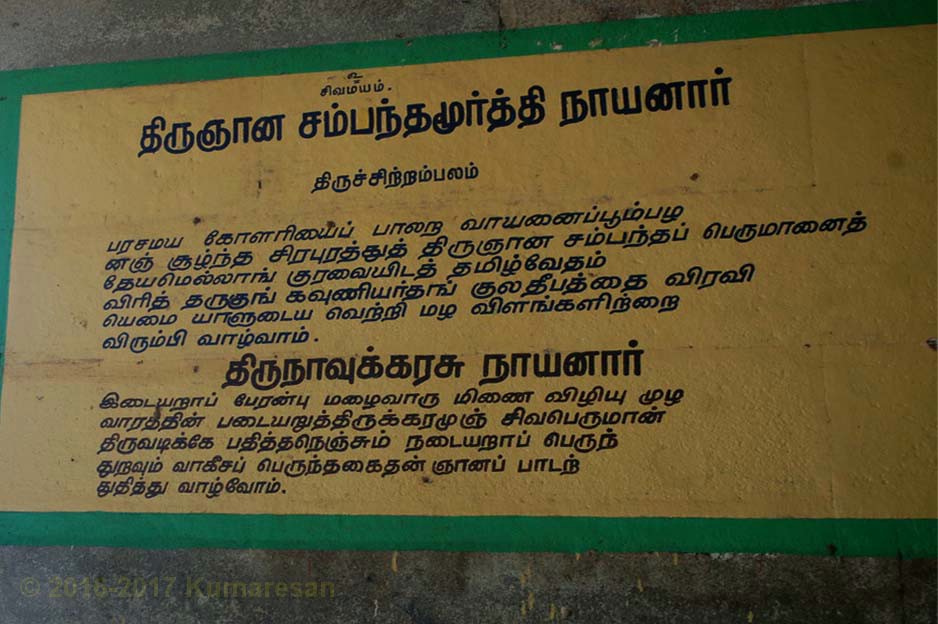 உ
சிவமயம்.
திருஞான சம்பந்தமூர்த்தி நாயனார்
திருச்சிற்றம்பலம்
பரசமய கோளரியைப் பாலற வாயனைப்பூம்பழ
னஞ் சூழ்ந்த சிரபுரத்துத் திருஞான சம்பந்தப் பெருமானைத்
தேயமெல்லாங் குரவையிடத் தமிழ்வேதம்
விரித் தருகுங் கவுணியர்தாங் குலதீபத்தை விரவி
யெமை யாளுடைய வெற்றி மழ விளங்களிற்றை
விரும்பி வாழ்வாம்.
திருநாவுக்கரசு நாயனார்
இடையறாப் பேரன்பு மழைவாரு மிணை விழியு முழ
வாரத்தின் படையறுத்திருக்கரமுஞ் சிவபெருமான்
திருவடிக்கே பதித்தநெஞ்சும் நடையறாப் பெருந்
துறவும் வாகீசப் பெருந்தகைதன் ஞானப் பாடற்
துதித்து வாழ்வோம்.
© 2016-2017 Kumaresan